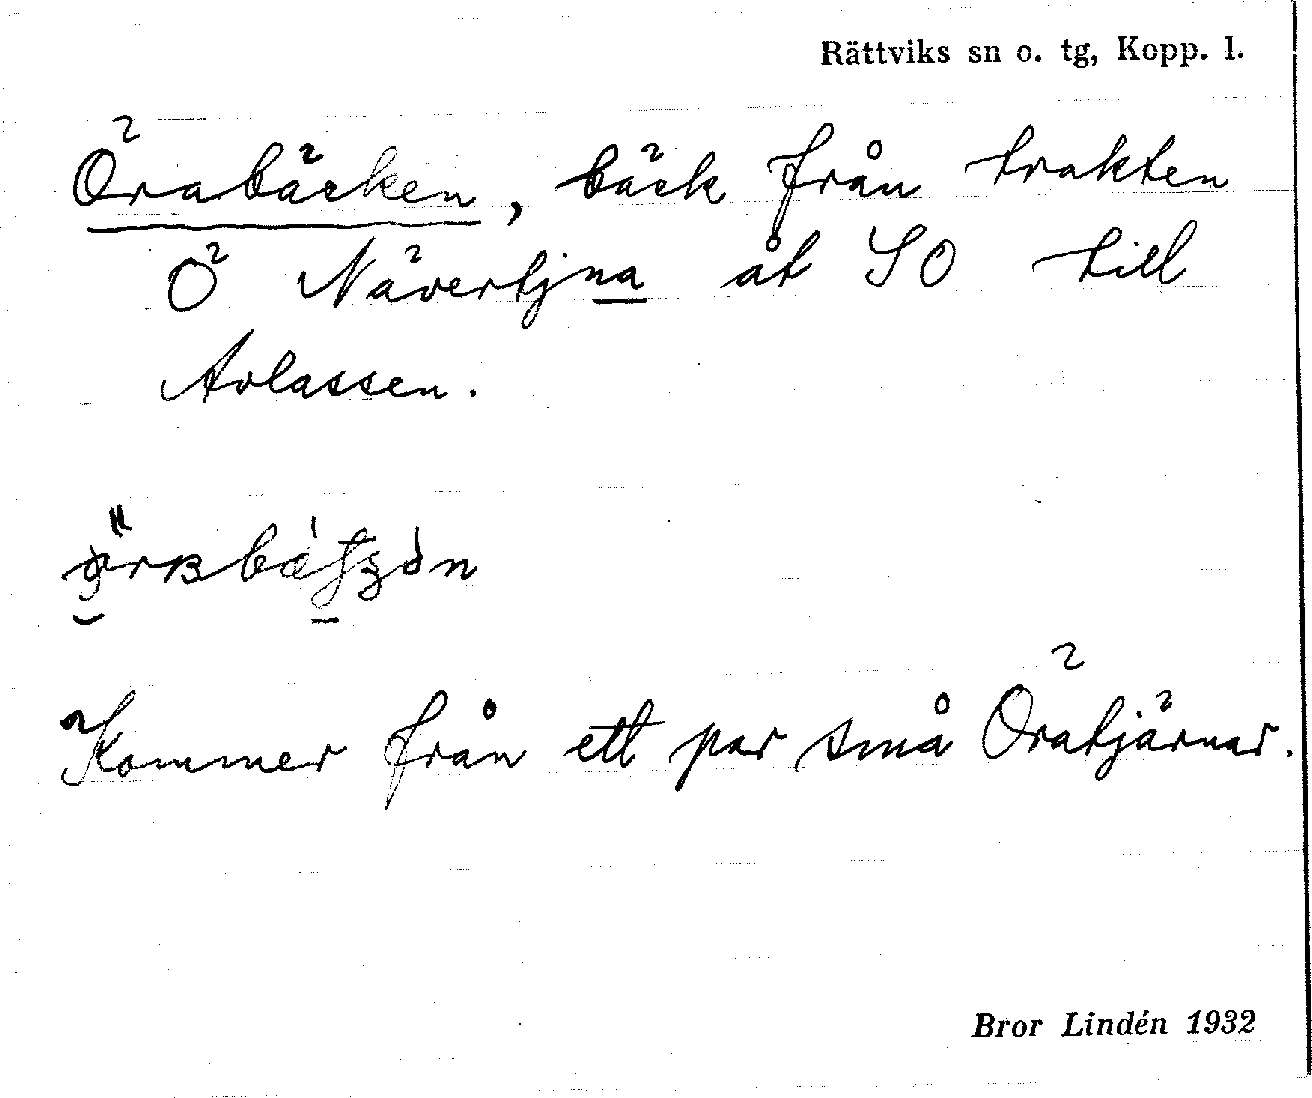 Rättviks sn o. tg, Kopp. l.
Örabäcken, bäck från trakten
Ö Nävertjna åt SO till
Avlassen.
Kommer från ett par små Öratjärnar.
Bror Lindén 1932